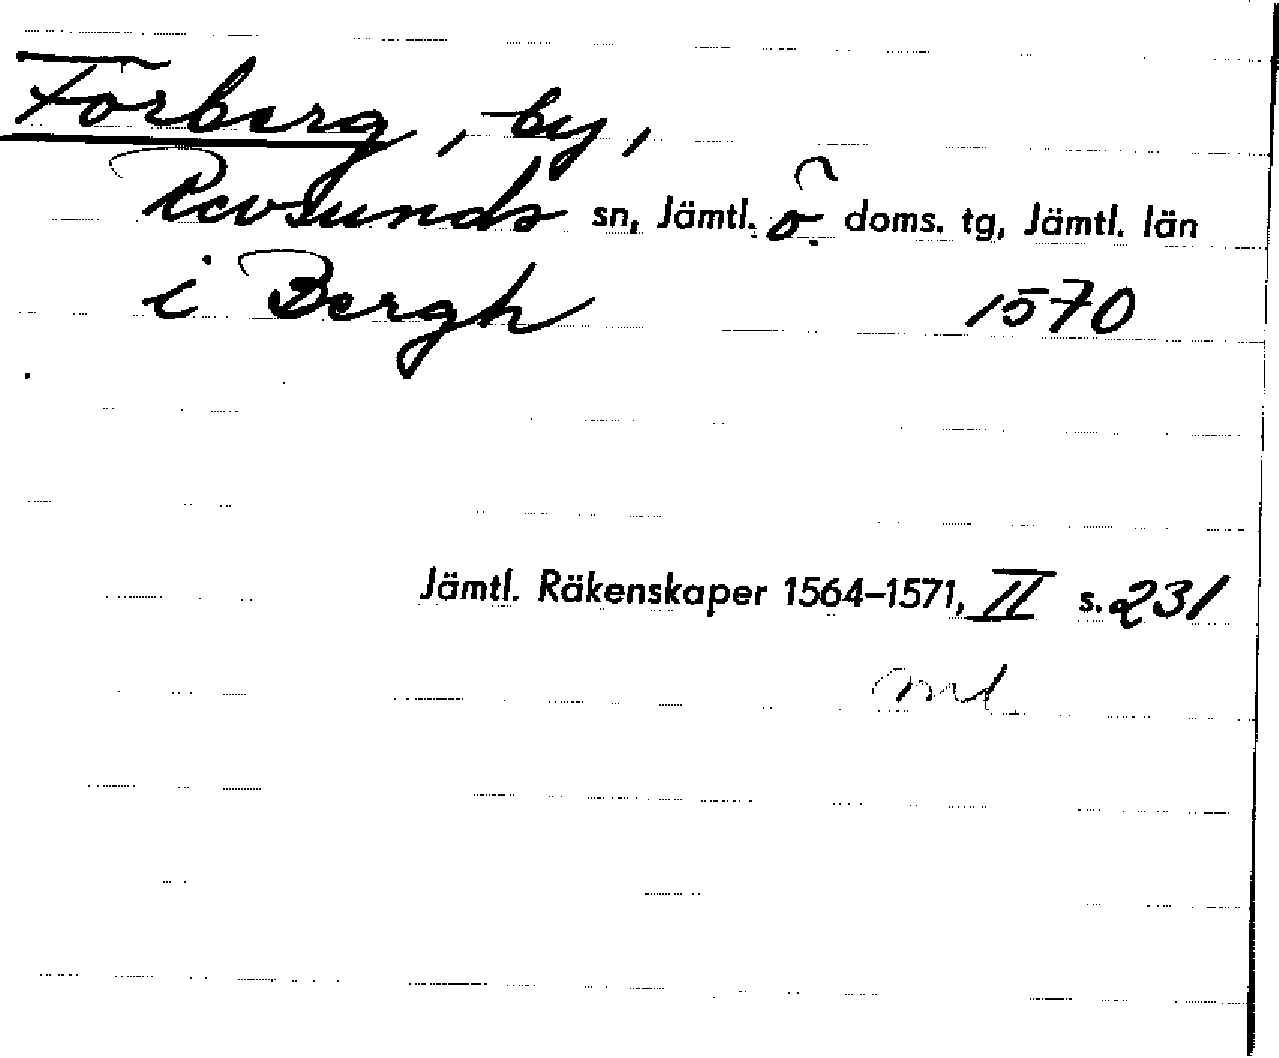 Förberg, by,
Revsunds sn, Jämtl. ö. doms. tg, Jämtl. län
i Bergh 1570
Jämtl. Räkenskaper 1564–1571, II s. 231